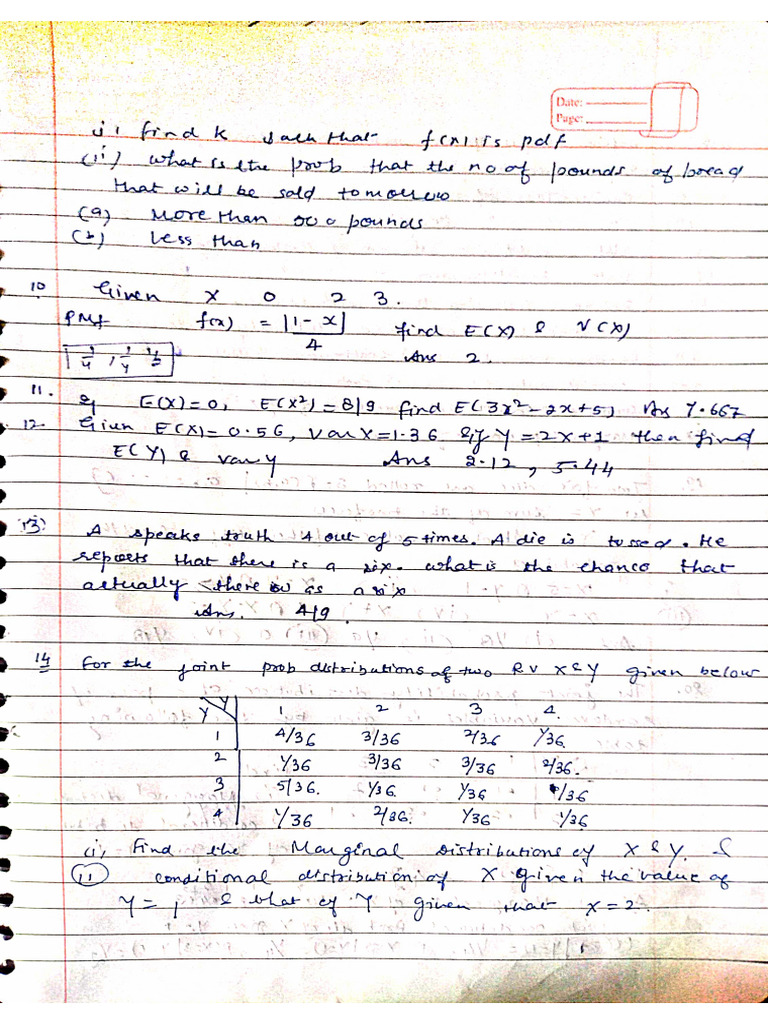 Date:
Page:
(i) find k such that f(x) is pdf
(ii) what is the prob that the no of pounds of bread
that will be sold tomorrow
(a) More than 500 pounds
(b) Less than
10 Given X 0 2 3.
PMf f(x) = |1-x|/4 find E(X) & V(X)
1/4, 1/4, 1/2 Ans 2.
11. If E(X)=0, E(X²)=8/9 find E(3x²-2x+5), Ans 7.667
12. Given E(X)=0.56, Var X=1.36 & if Y=2X+1 then find
E(Y) & var y Ans 2.12, 5.44
13) A speaks truth 4 out of 5 times. A die is tossed. He
reports that there is a six. what is the chance that
actually there was a six
Ans. 4/9.
14 For the joint prob distributions of two RV X & Y given below
Y Y 1 2 3 4.
1 4/36 3/36 2/36 1/36.
2 1/36 3/36 3/36 2/36.
3 5/36. 1/36. 1/36 1/36
4 1/36 2/36. 1/36 1/36
(i) Find the Marginal distributions of X & Y. &
(ii) conditional distribution of X given the value of
Y=1 & that of Y given that X=2.